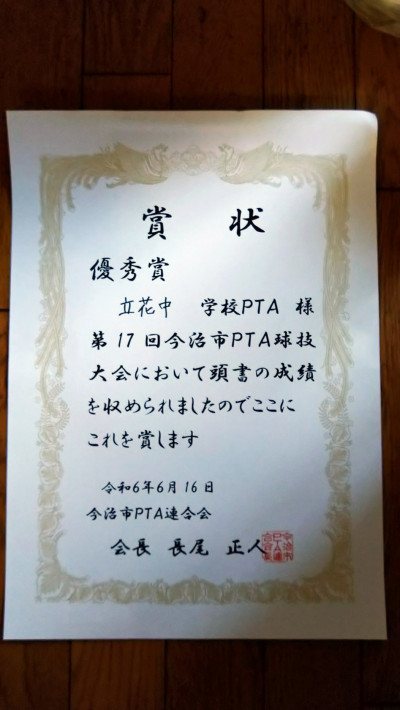 賞状
優秀賞
立花中 学校PTA 様
第17回今治市PTA球技
大会において頭書の成績
を収められましたのでここに
これを賞します
令和6年6月16日
今治市PTA連合会
会長 長尾 正人